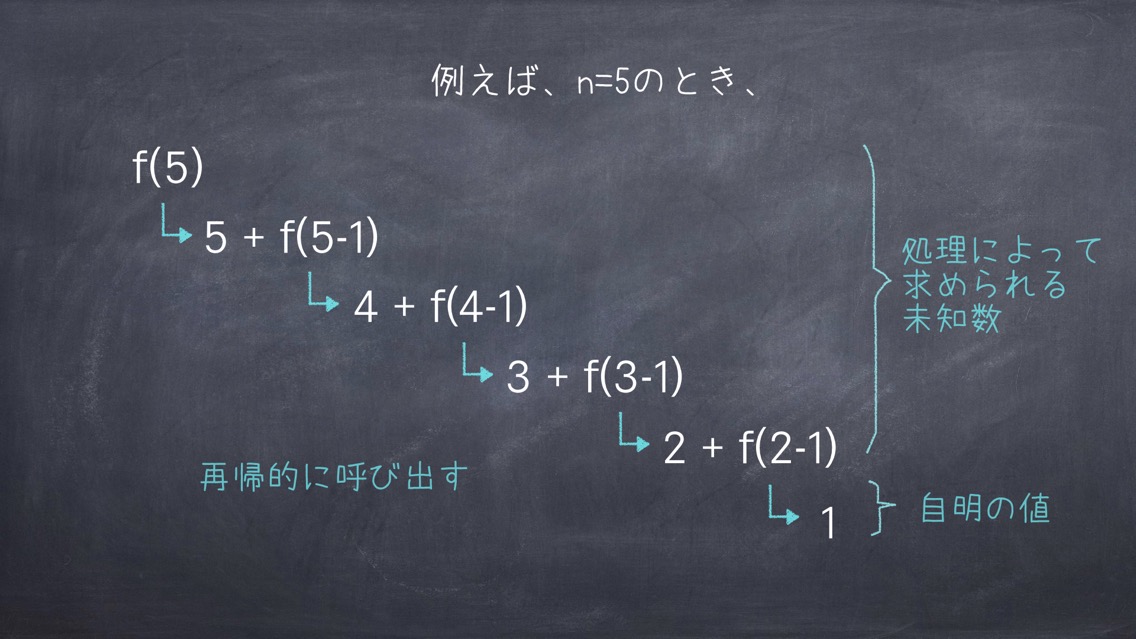 例えば、n=5のとき、
f(5)
5 + f(5-1)
4 + f(4-1)
3 + f(3-1)
2 + f(2-1)
1
処理によって
求められる
未知数
再帰的に呼び出す
自明の値